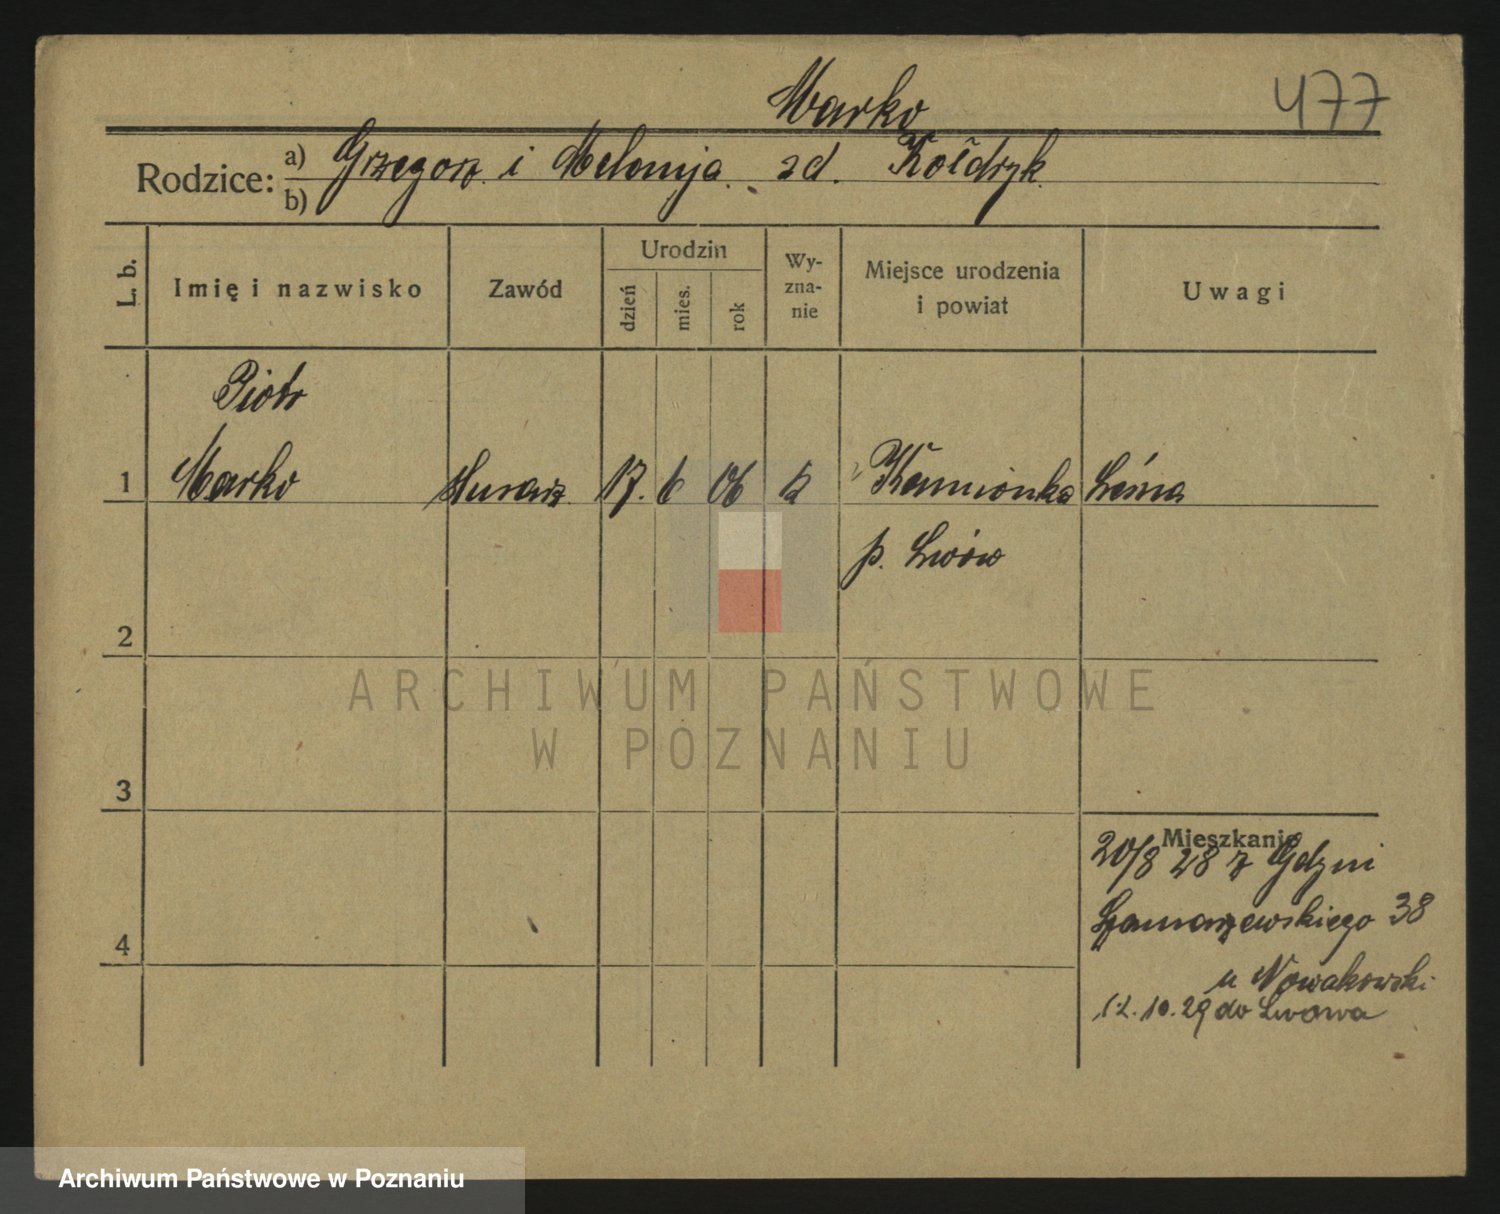 Marko
477
Rodzice: a) Grzegorz i Melonija zd. Kołdryk
b)
L. b. Imię i nazwisko Zawód Urodzin dzień mies. rok Wy-zna-nie Miejsce urodzenia i powiat Uwagi
Piotr
1 Marko ślusarz 17. 6 06 k Kamionka Leśna
p. Lwów
2
ARCHIWUM PAŃSTWOWE
W POZNANIU
3
Mieszkanie
20/8 28 z Gdyni
Szamarzewskiego 38
4
u Nowakowski
12. 10. 29 do Lwowa
Archiwum Państwowe w Poznaniu